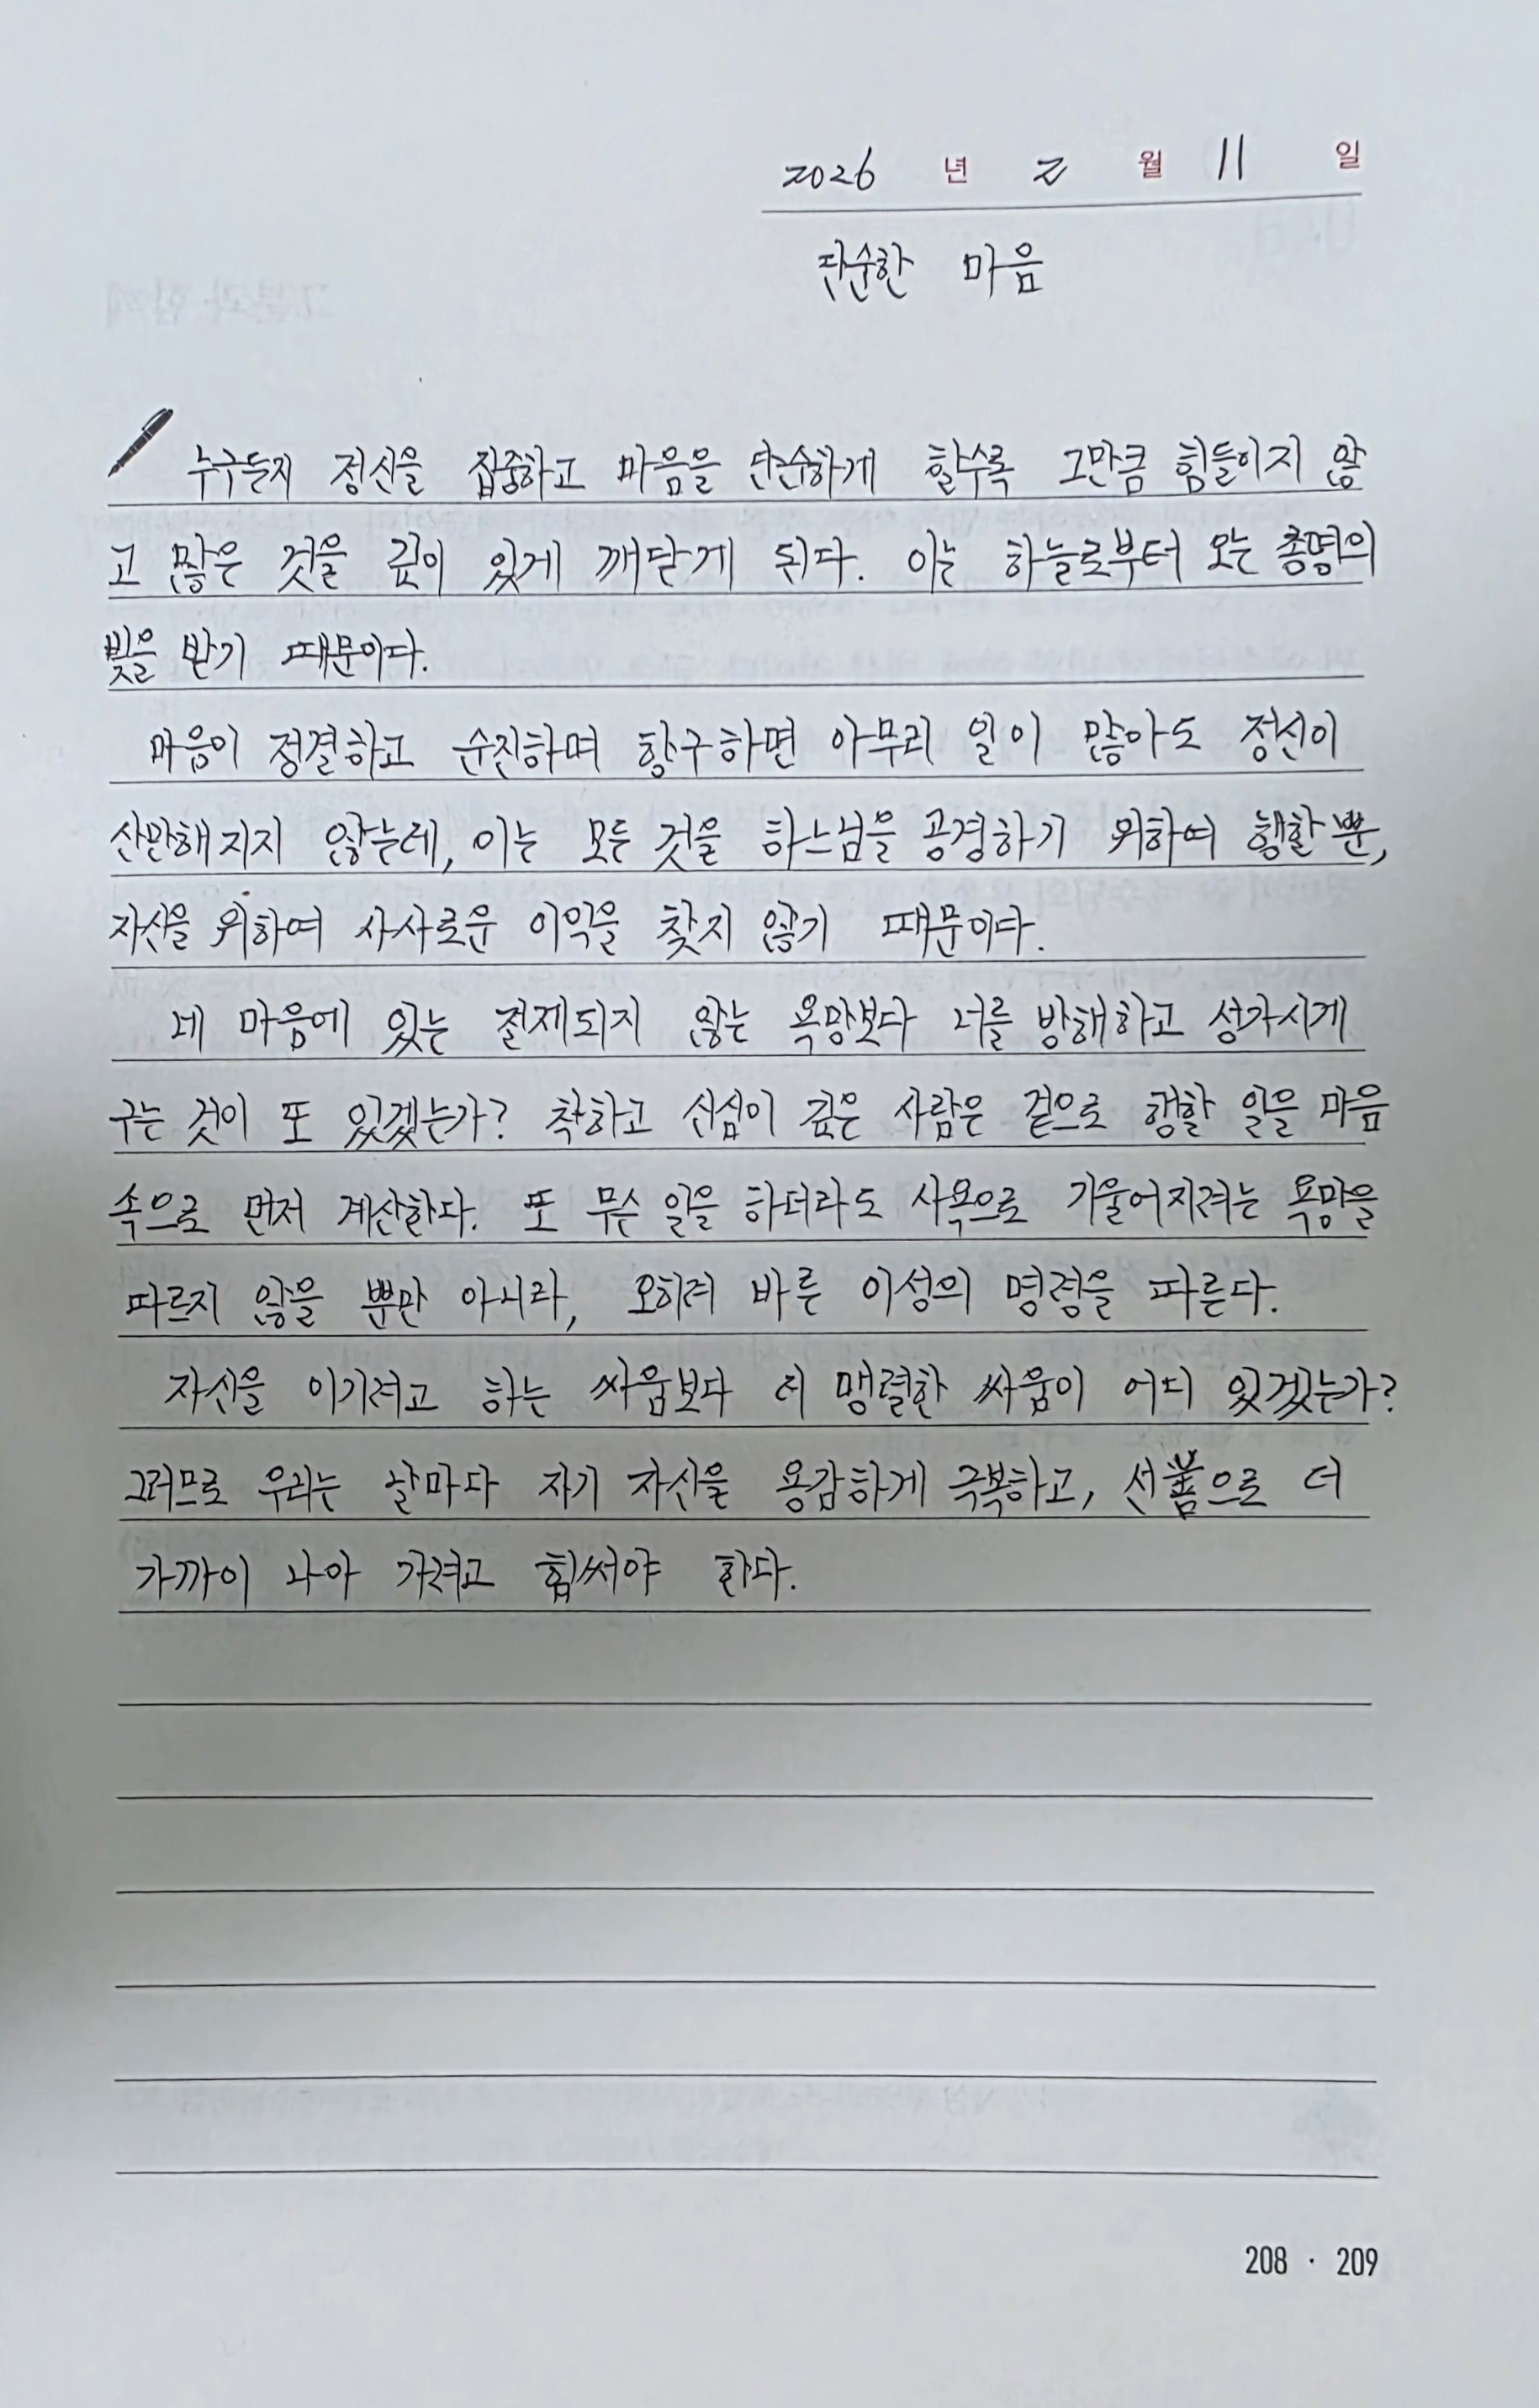 2026 년 2 월 11 일
단순한 마음
누구든지 정신을 집중하고 마음을 단순하게 할수록 그만큼 힘들이지 않
고 많은 것을 깊이 있게 깨닫게 된다. 이는 하늘로부터 오는 총명의
빛을 받기 때문이다.
마음이 정결하고 순진하며 항구하면 아무리 일이 많아도 정신이
산만해지지 않는데, 이는 모든 것을 하느님을 공경하기 위하여 행할 뿐,
자신을 위하여 사사로운 이익을 찾지 않기 때문이다.
네 마음에 있는 절제되지 않는 욕망보다 너를 방해하고 성가시게
구는 것이 또 있겠는가? 착하고 신심이 깊은 사람은 겉으로 행할 일을 마음
속으로 먼저 계산한다. 또 무슨 일을 하더라도 사욕으로 기울어지려는 욕망을
따르지 않을 뿐만 아니라, 오히려 바른 이성의 명령을 따른다.
자신을 이기려고 하는 싸움보다 더 맹렬한 싸움이 어디 있겠는가?
그러므로 우리는 날마다 자기 자신을 용감하게 극복하고, 선善으로 더
가까이 나아 가려고 힘써야 한다.
208 · 209